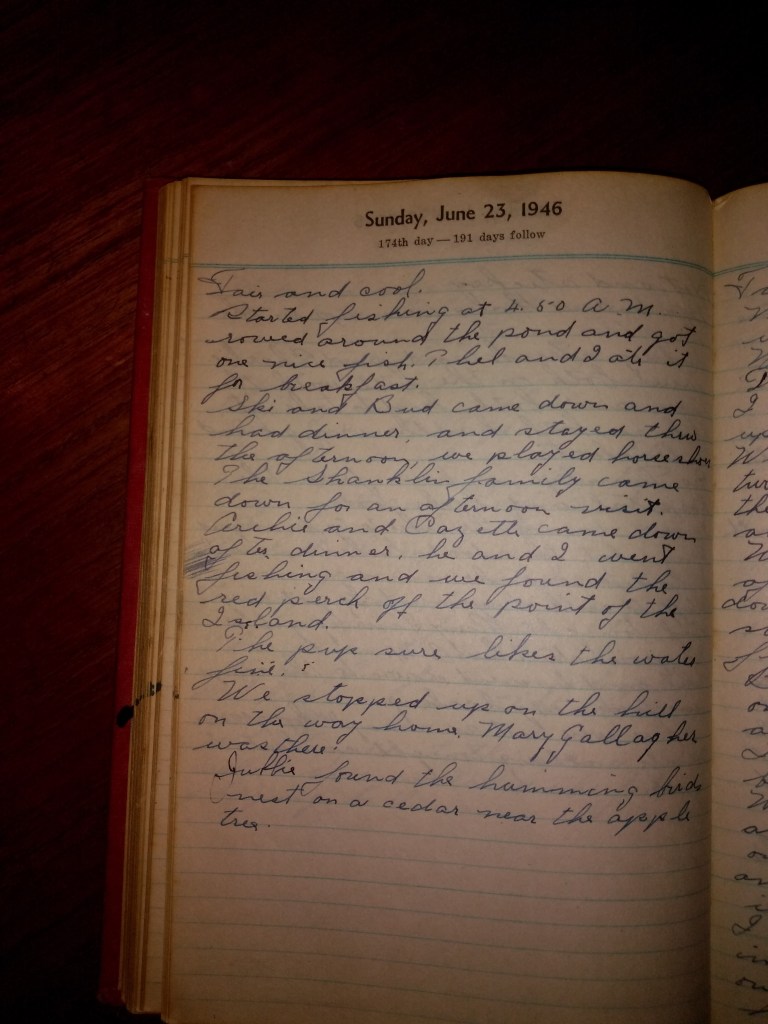 Sunday, June 23, 1946
174th day — 191 days follow
Fair and cool.
Started fishing at 4.50 A.M.
rowed around the pond and got
one nice fish. Phel and I ate it
for breakfast.
Ski and Bud came down and
had dinner, and stayed thru
the afternoon, we played horseshoes
The Shanklin family came
down for an afternoon visit.
Archie and came down
after dinner. he and I went
fishing and we found the
red perch off the point of the
Island.
The pup sure likes the water
fine.
We stopped up on the hill
on the way home. Mary Gallagher
was there.
found the humming birds
nest on a cedar near the apple
tree.